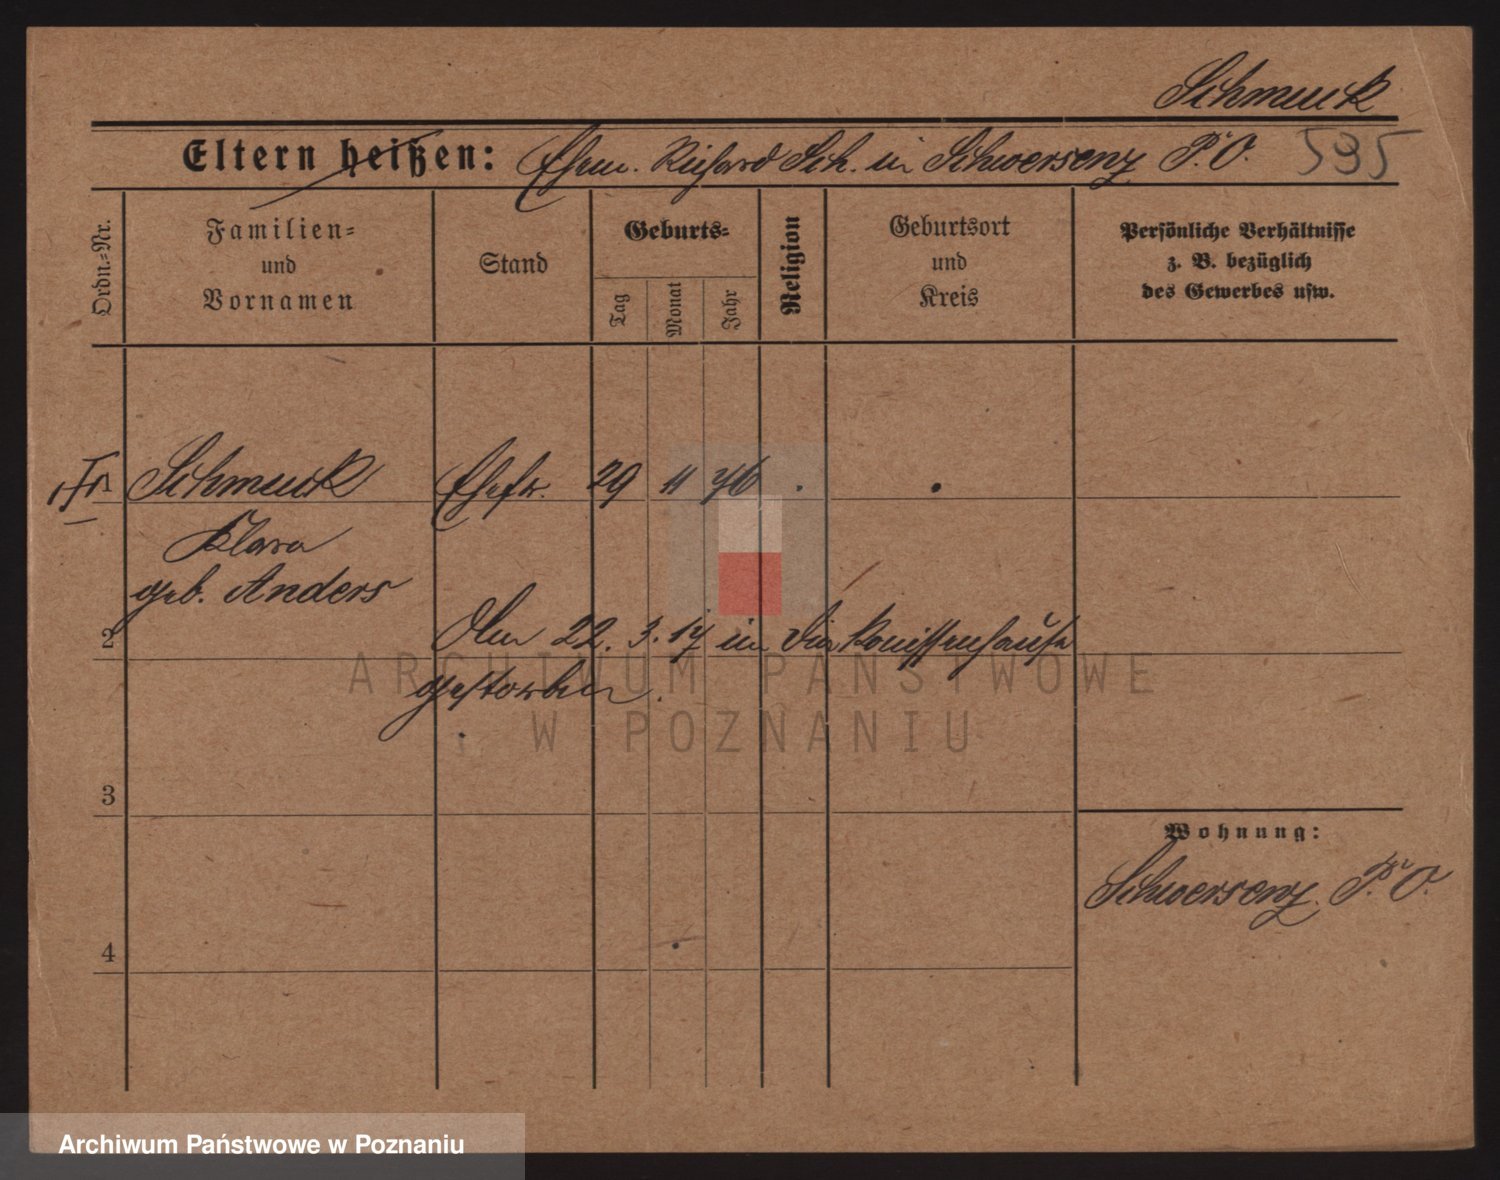 Schmuck
Eltern heißen: Ehem. Richard Sch. in Schwersenz P. O. 595
Ordn.-Nr.
Familien-
und
Vornamen
Stand
Geburts-
Tag
Monat
Jahr
Religion
Geburtsort
und
Kreis
Persönliche Verhältnisse
z. B. bezüglich
des Gewerbes usw.
1 Schmuck Ehefr. 29 11 76
Klara
geb. Anders
2 Am 22. 3. 17 in Diakonissenhause
gestorben.
ARCHIWUM PAŃSTWOWE
W POZNANIU
3
Wohnung:
Schwersenz. P. O.
4
Archiwum Państwowe w Poznaniu